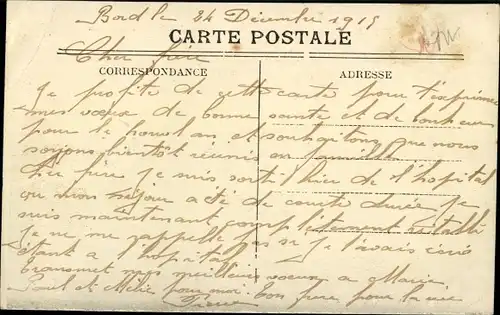 Bord le 24 Décembre 1915
CARTE POSTALE
Cher frère
CORRESPONDANCE ADRESSE
Je profite de cette carte pour t'exprimer
mes vœux de bonne santé et de bonheur
pour le nouvel an et souhaitons que nous
soyons bientôt réunis en famille
Cher frère je suis sorti hier de l'hopital
ou mon séjour a été de courte durée je
suis maintenant complètement rétabli
je ne me rappelle pas si je t'avais écris
étant a l'hopital
transmet mes meilleurs vœux a Marie
Paul et pour moi. ton frère pour la vie
Pierre